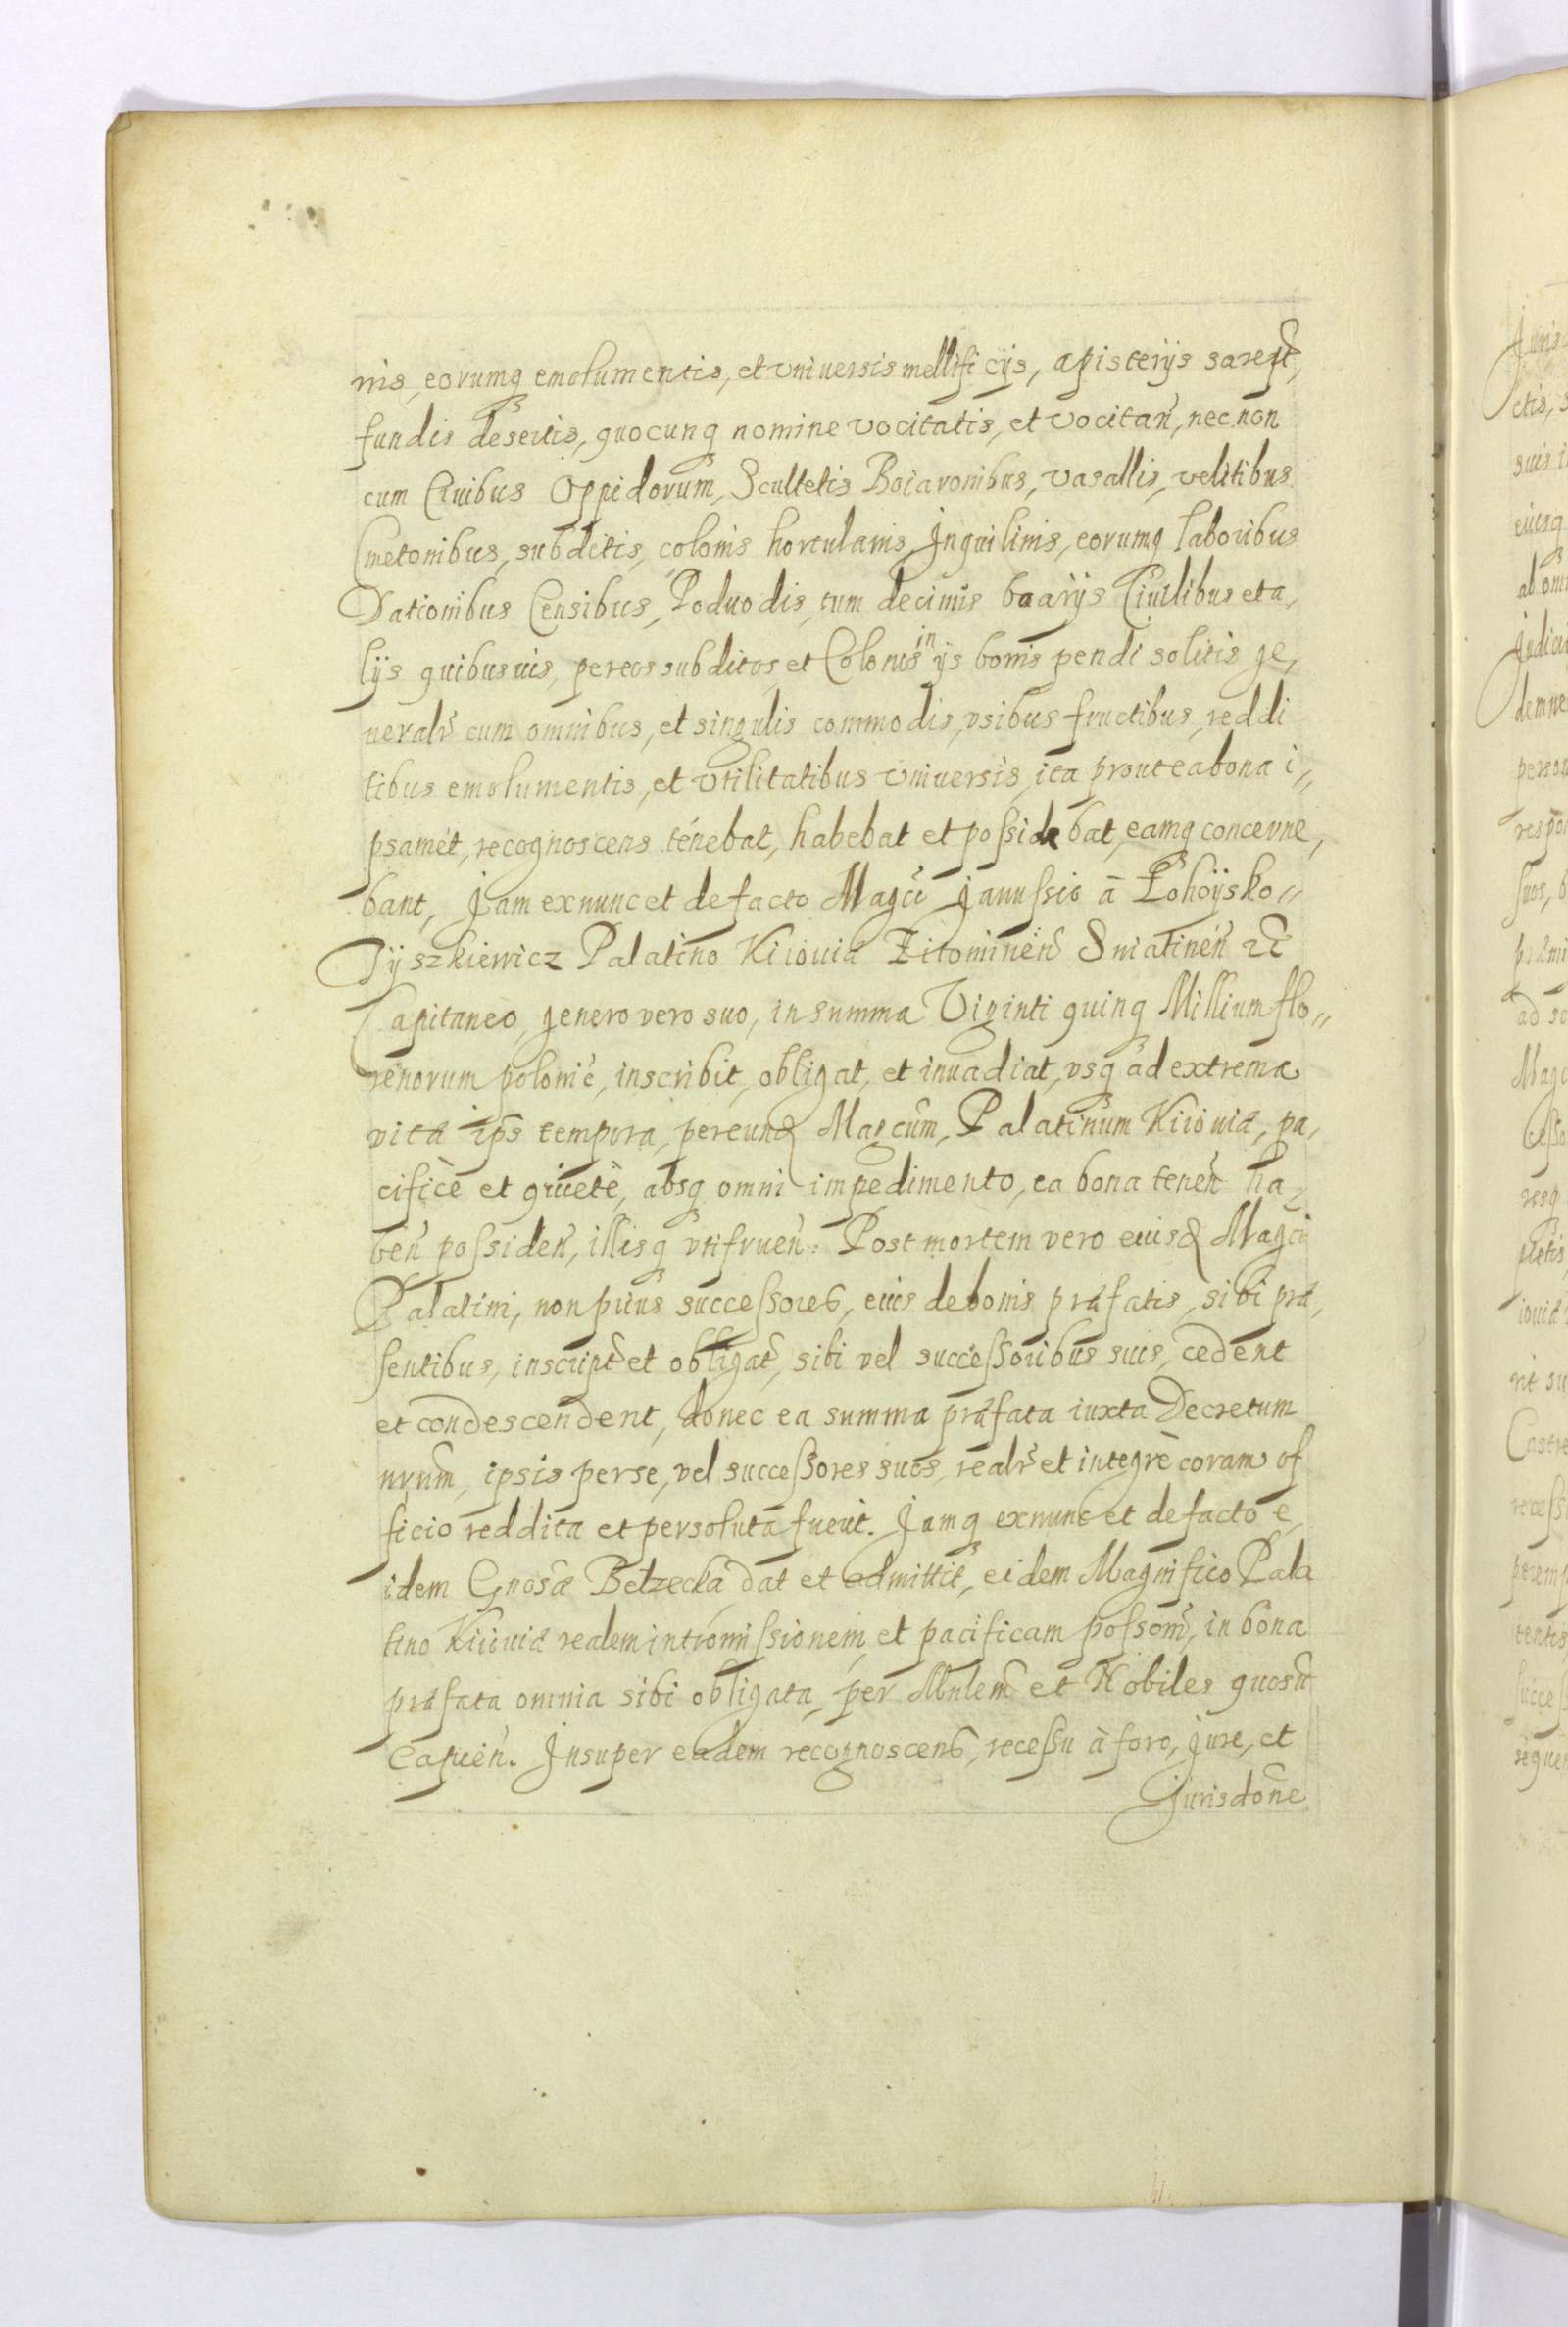 nis, eorumq emolumentis, et vniuersis mellificijs, apisterijs sarept,
fundis desertis, quocunq nomine vocitatis, et vocitan, nec non
cum Ciuibus Oppidorum, Scultetis Boiaronibus, vasallis, velitibus
Cmetonibus, subditis, colonis hortulanis, Inquilinis, eorumq laboribus
Dationibus Censibus, Poduodis, tum decimis boarijs Ciuilibus et a,
lijs quibusuis, per eos subditos et Colonos in ijs bonis pendi solitis ge,
neralr cum omnibus, et singulis commodis, vsibus fructibus, reddi
tibus emolumentis, et vtilitatibus vniuersis, ita prout ea bona i,,
psamet, recognoscens tenebat, habebat et possidebat, eamq concerne,
bant, Jam ex nunc et de facto Magco Janussio à Łohoÿsko,,
Tÿszkiewicz Palatino Kiiouiæ Żitominen Sniatinen etc
Capitaneo, genero vero suo, in summa Viginti quinq Millium flo,,
renorum polonie, inscribit, obligat, et inuadiat, vsq ad extrema
vitæ ips tempora, per eund Magcum, Palatinum Kiiouiæ, pa,
cificè et quietè, absq omni impedimento, ea bona tenen ha,
ben possiden, illisq vti fruen. Post mortem vero eiusd Magci
Palatini, non prius successores, eius de bonis præfatis, sibi præ,
sentibus, inscript et obligat, sibi vel successoribus suis, cedent
et condescendent, donec ea summa præfata iuxta Decretum
nrum, ipsis per se, vel successores suos, realr et integrè coram of
ficio reddita et persoluta fuerit. Jamq ex nunc et de facto e,
idem Gnosa Betzecka dat et admittit, eidem Magnifico Pala
tino Kiiouiæ realem intromissionem, et pacificam possom, in bona
præfata omnia sibi obligata, per Mnlem et Nobiles quosu
Capien. Insuper eadem recognoscens, recessu à foro, jure, et
Jurisdone